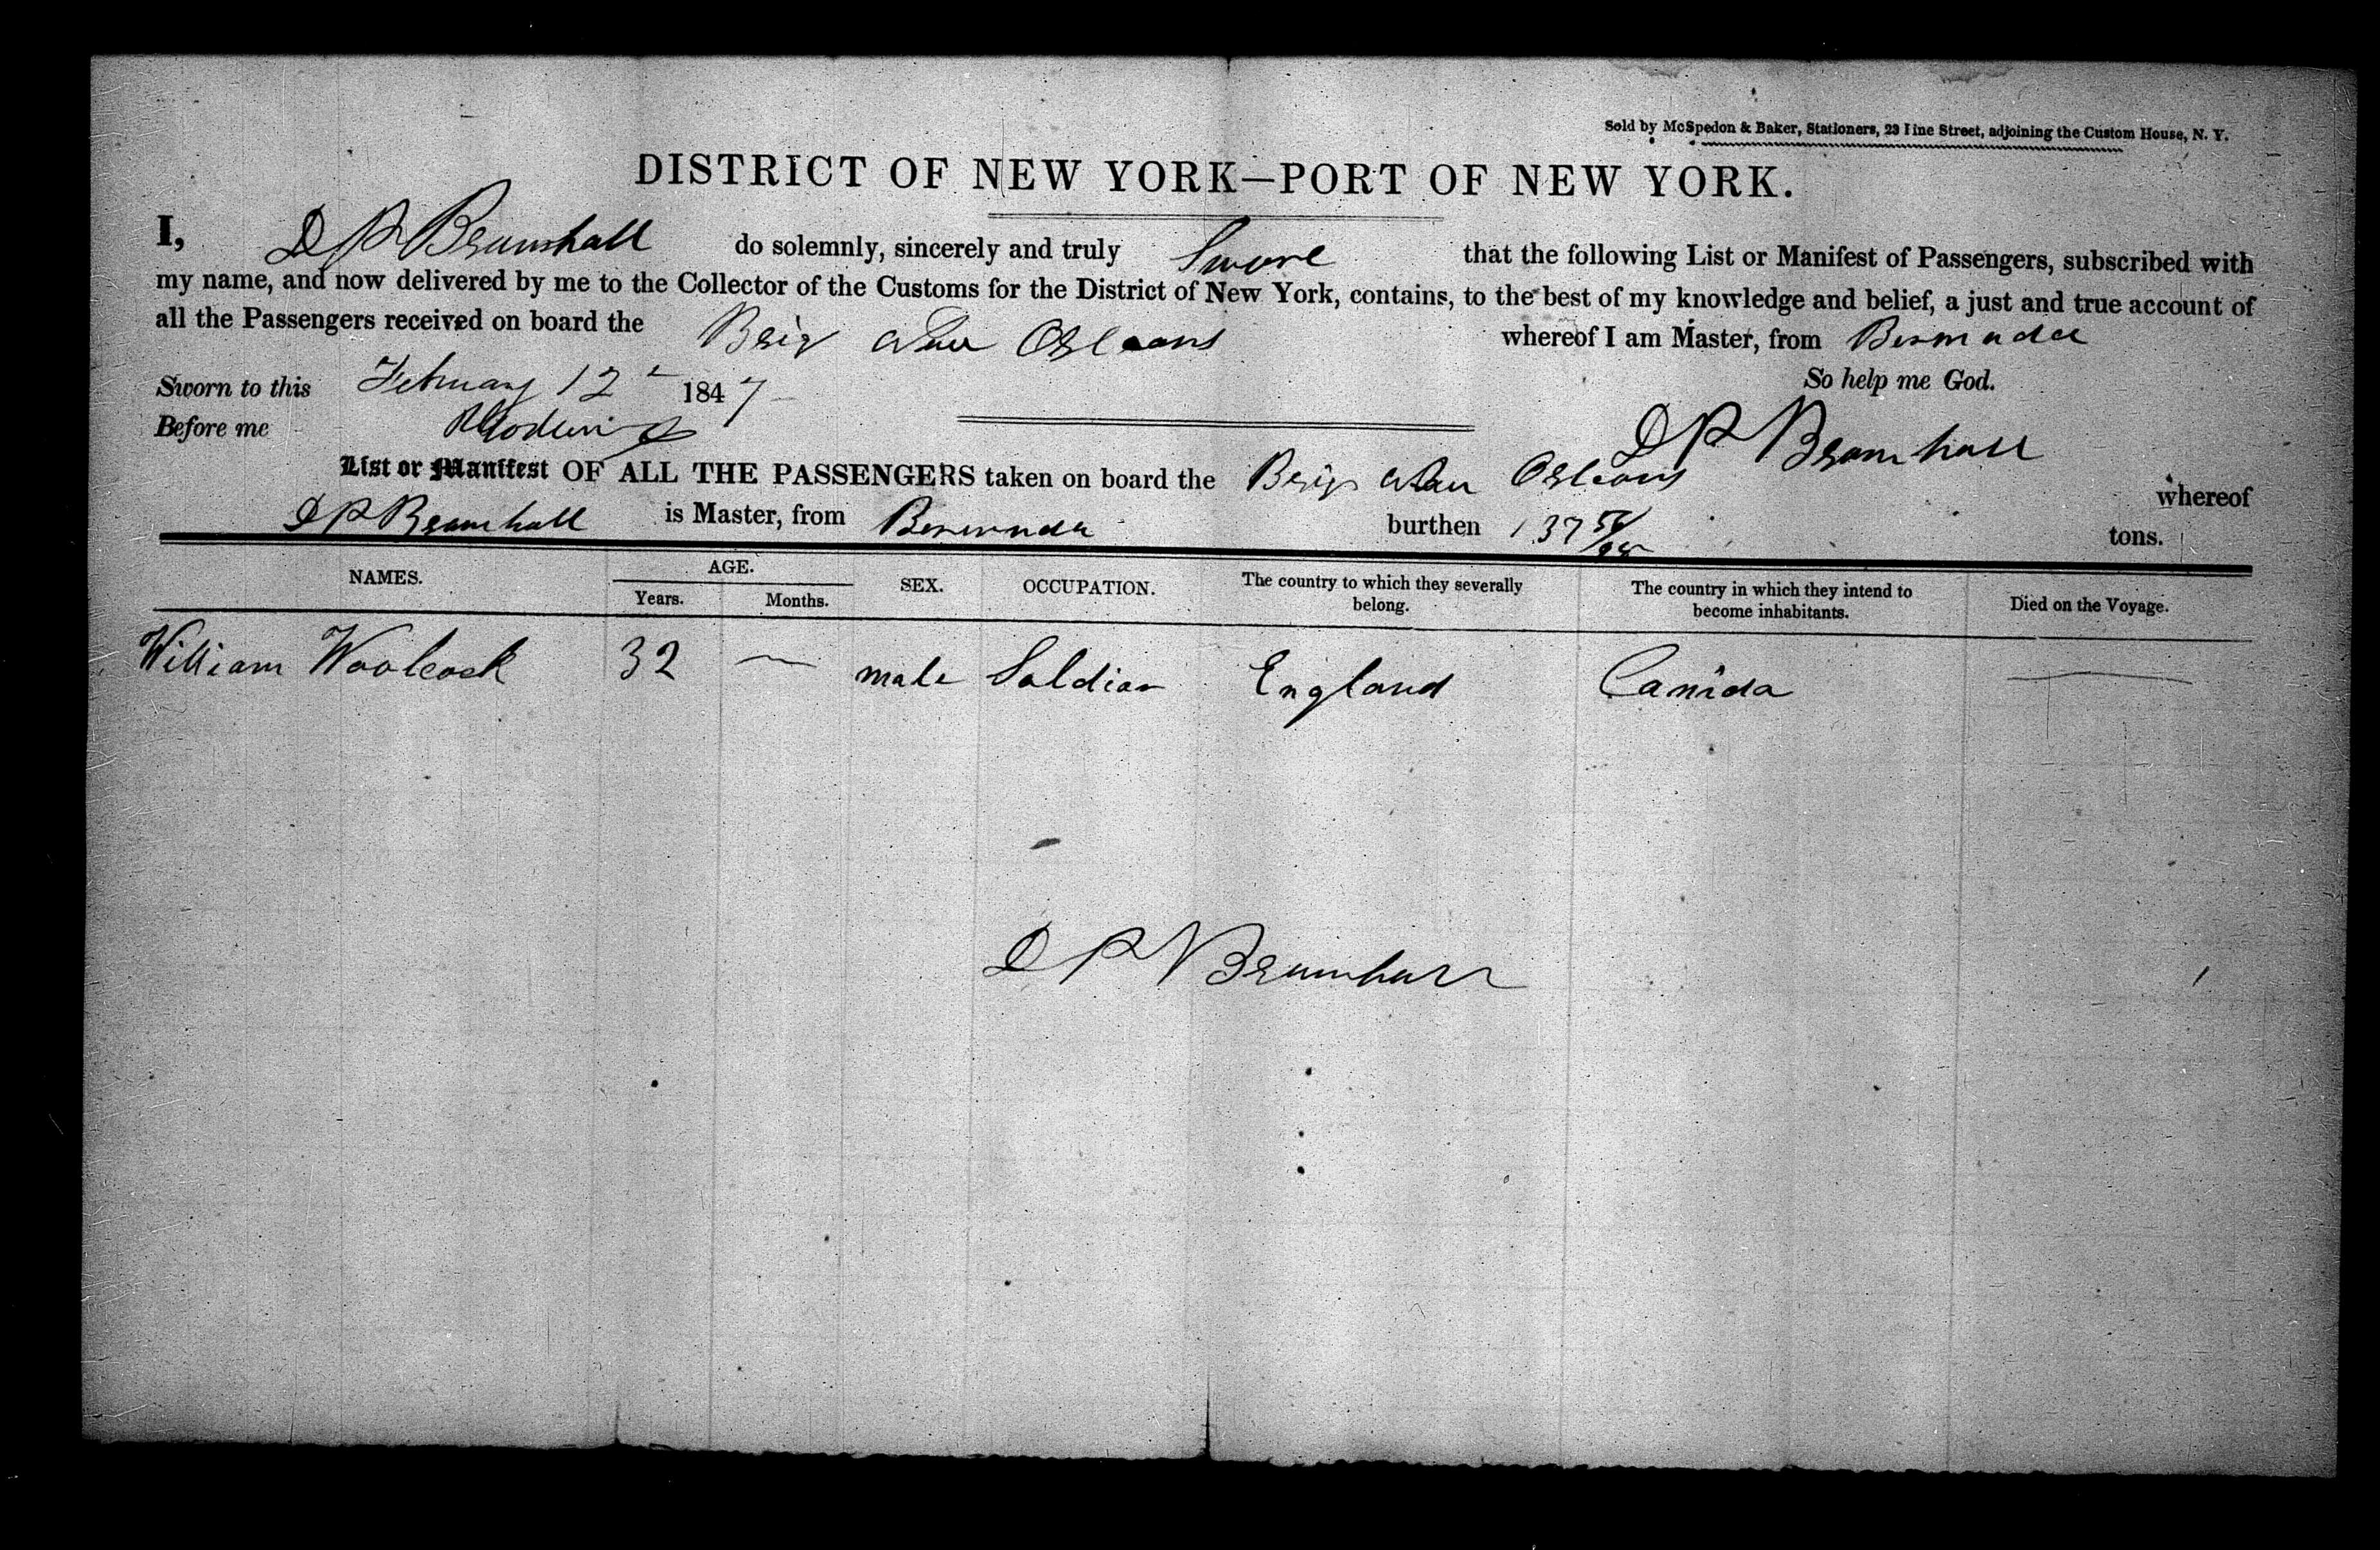 Sold by McSpedon & Baker, Stationers, 23 Pine Street, adjoining the Custom House, N. Y.
DISTRICT OF NEW YORK—PORT OF NEW YORK.
I, D P Bramhall do solemnly, sincerely and truly Swore that the following List or Manifest of Passengers, subscribed with
my name, and now delivered by me to the Collector of the Customs for the District of New York, contains, to the best of my knowledge and belief, a just and true account of
all the Passengers received on board the Brig New Orleans whereof I am Master, from Bermuda
So help me God.
Sworn to this February 12 1847
Before me
D P Bramhall
List or Manifest OF ALL THE PASSENGERS taken on board the Brig New Orleans whereof
D P Bramhall is Master, from Bermuda burthen 137 tons.
NAMES. AGE. Years. Months. SEX. OCCUPATION. The country to which they severally belong. The country in which they intend to become inhabitants. Died on the Voyage.
William Woolcock 32 — male Soldier England Canida —
D P Bramhall